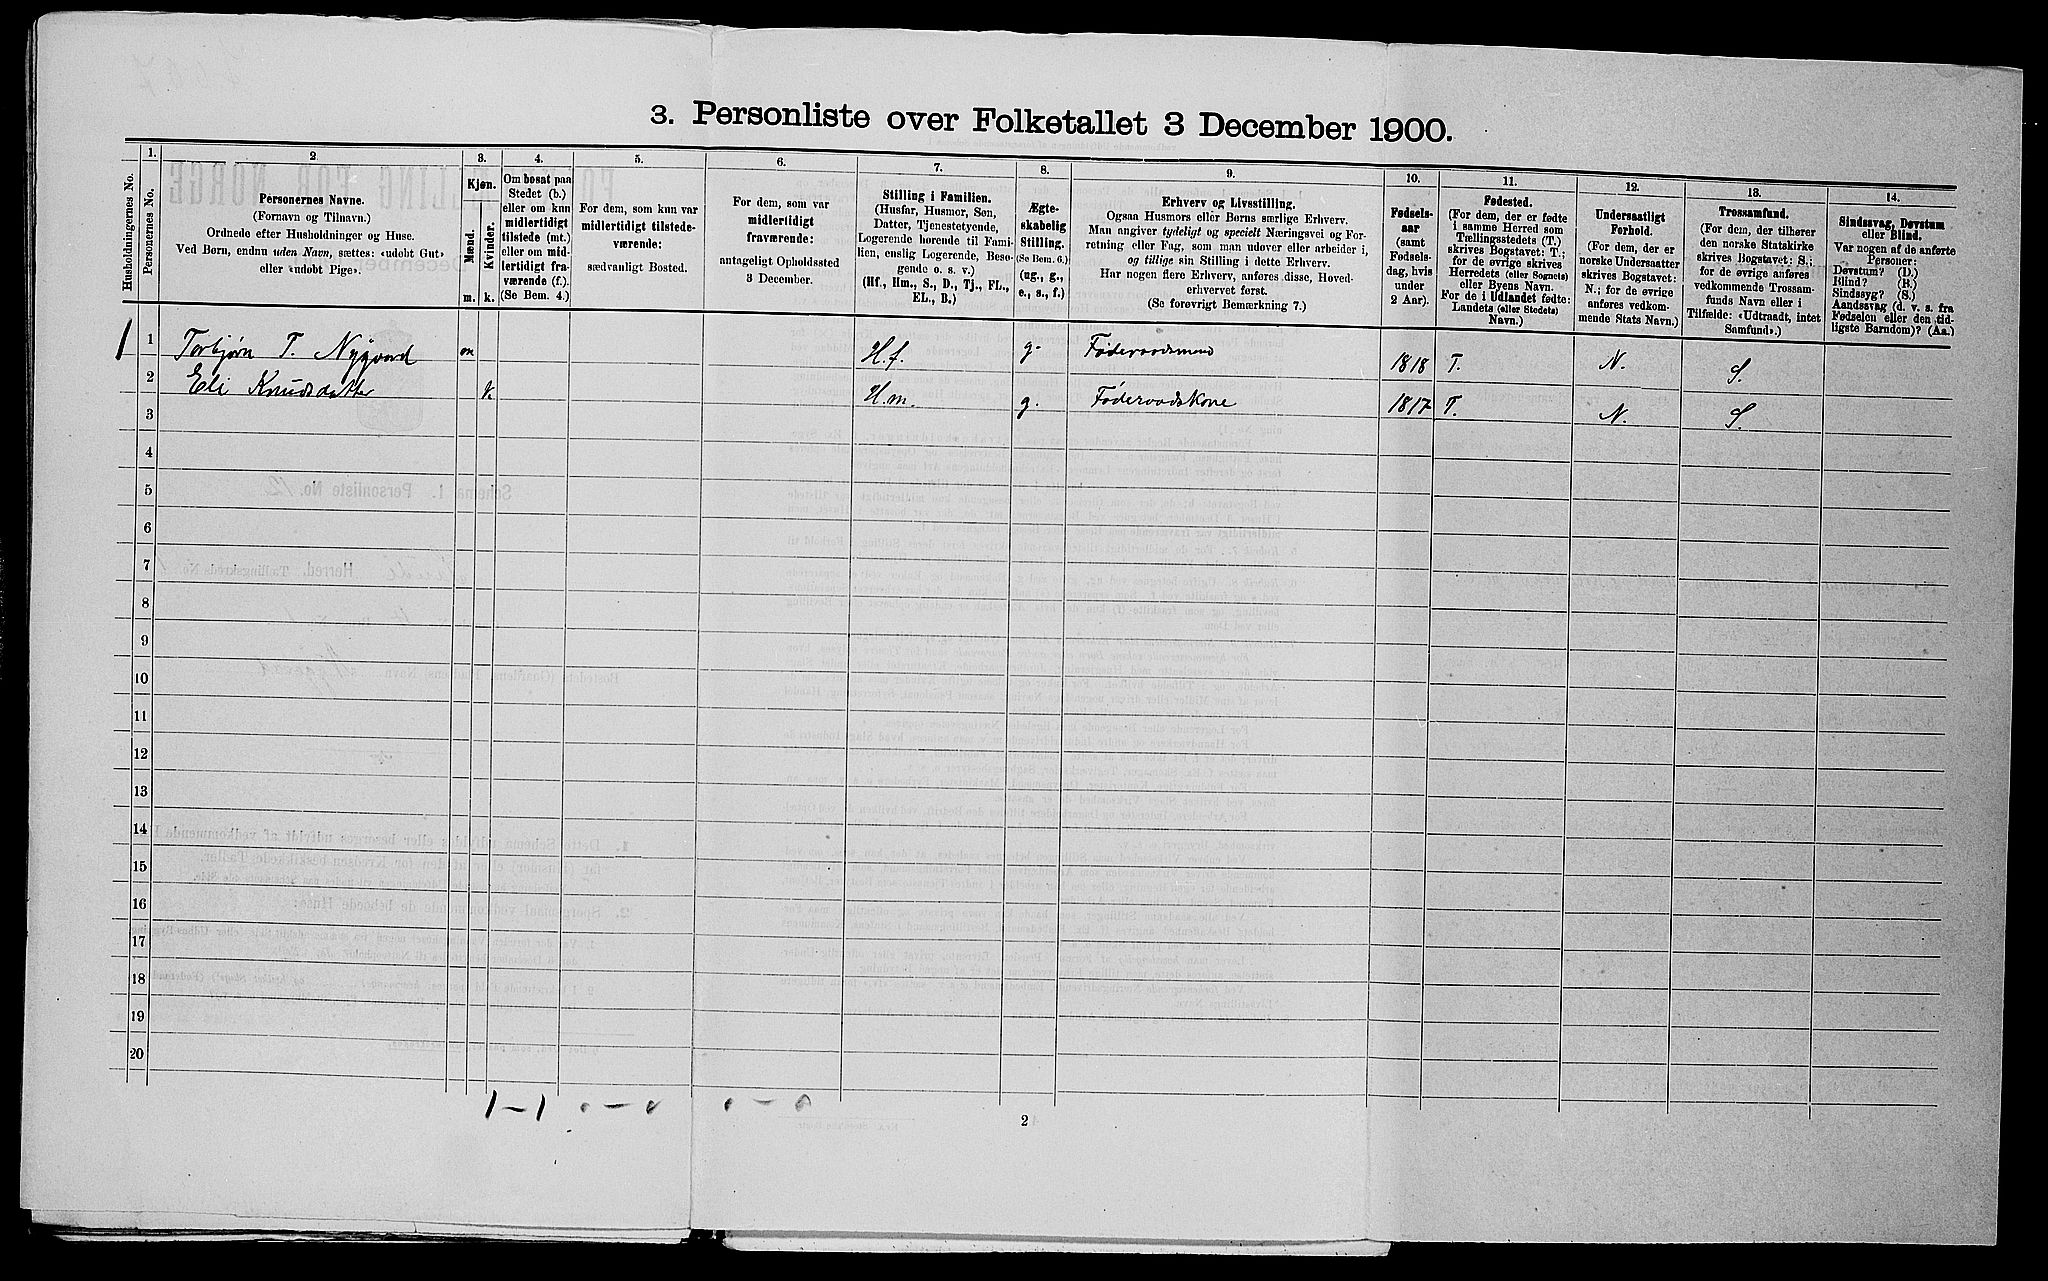 3. Personliste over Folketallet 3 December 1900.
Husholdningernes No.
1.
Personernes No.
2.
Personernes Navne.
(Fornavn og Tilnavn.)
Ordnede efter Husholdninger og Huse.
Ved Børn, endnu uden Navn, sættes: «udøbt Gut»
eller «udøbt Pige».
3.
Kjøn.
Mænd.
Kvinder.
m.
k.
4.
Om bosat paa
Stedet (b.)
eller om kun
midlertidigt
tilstede (mt.)
eller om mid-
lertidigt fra-
værende (f.).
(Se Bem. 4.)
5.
For dem, som kun var
midlertidigt tilstede-
værende:
sædvanligt Bosted.
6.
For dem, som var
midlertidigt
fraværende:
antageligt Opholdssted
3 December.
7.
Stilling i Familien.
(Husfar, Husmor, Søn,
Datter, Tjenestetyende,
Logerende hørende til Fami-
lien, enslig Logerende, Besø-
gende o. s. v.)
(Hf., Hm., S., D., Tj., FL.,
EL., B.)
8.
Ægte-
skabelig
Stilling.
(Se Bem. 6.)
(ug., g.,
e., s., f.)
9.
Erhverv og Livsstilling.
Ogsaa Husmors eller Børns særlige Erhverv.
Man angiver tydeligt og specielt Næringsvei og For-
retning eller Fag, som man udøver eller arbeider i,
og tillige sin Stilling i dette Erhverv.
Har nogen flere Erhverv, anføres disse, Hoved-
erhvervet først.
(Se forøvrigt Bemærkning 7.)
10.
Fødsels-
aar
(samt
Fødsels-
dag, hvis
under
2 Aar).
11.
Fødested.
(For dem, der er fødte
i samme Herred som
Tællingsstedets (T.)
skrives Bogstavet: T.;
for de øvrige skrives
Herredets (eller Sognets)
eller Byens Navn.
For de i Udlandet fødte:
Landets (eller Stedets)
Navn.)
12.
Undersaatligt
Forhold.
(For dem, der er
norske Undersaatter
skrives Bogstavet:
N.; for de øvrige
anføres vedkom-
mende Stats Navn.)
13.
Trossamfund.
(For dem, der tilhører
den norske Statskirke
skrives Bogstavet: S.;
for de øvrige anføres
vedkommende Trossam-
funds Navn eller i
Tilfælde: «Udtraadt, intet
Samfund».)
14.
Sindssvag, Døvstum
eller Blind.
Var nogen af de anførte
Personer:
Døvstum? (D.)
Blind? (B.)
Sindssyg? (S.)
Aandssvag (d. v. s. fra
Fødselen eller den tid-
ligste Barndom)? (Aa.)
1 1 Torbjørn T. Nygaard m H.f. g. Føderaadsmand 1818 T. N. S.
2 Eli Knudsdatter k H.m. g. Føderaadskone 1817 T. N. S.
3
4
5
6
7
8
9
10
11
12
13
14
15
16
17
18
19
20
1 - 1 0 - 0 0 - 0
2